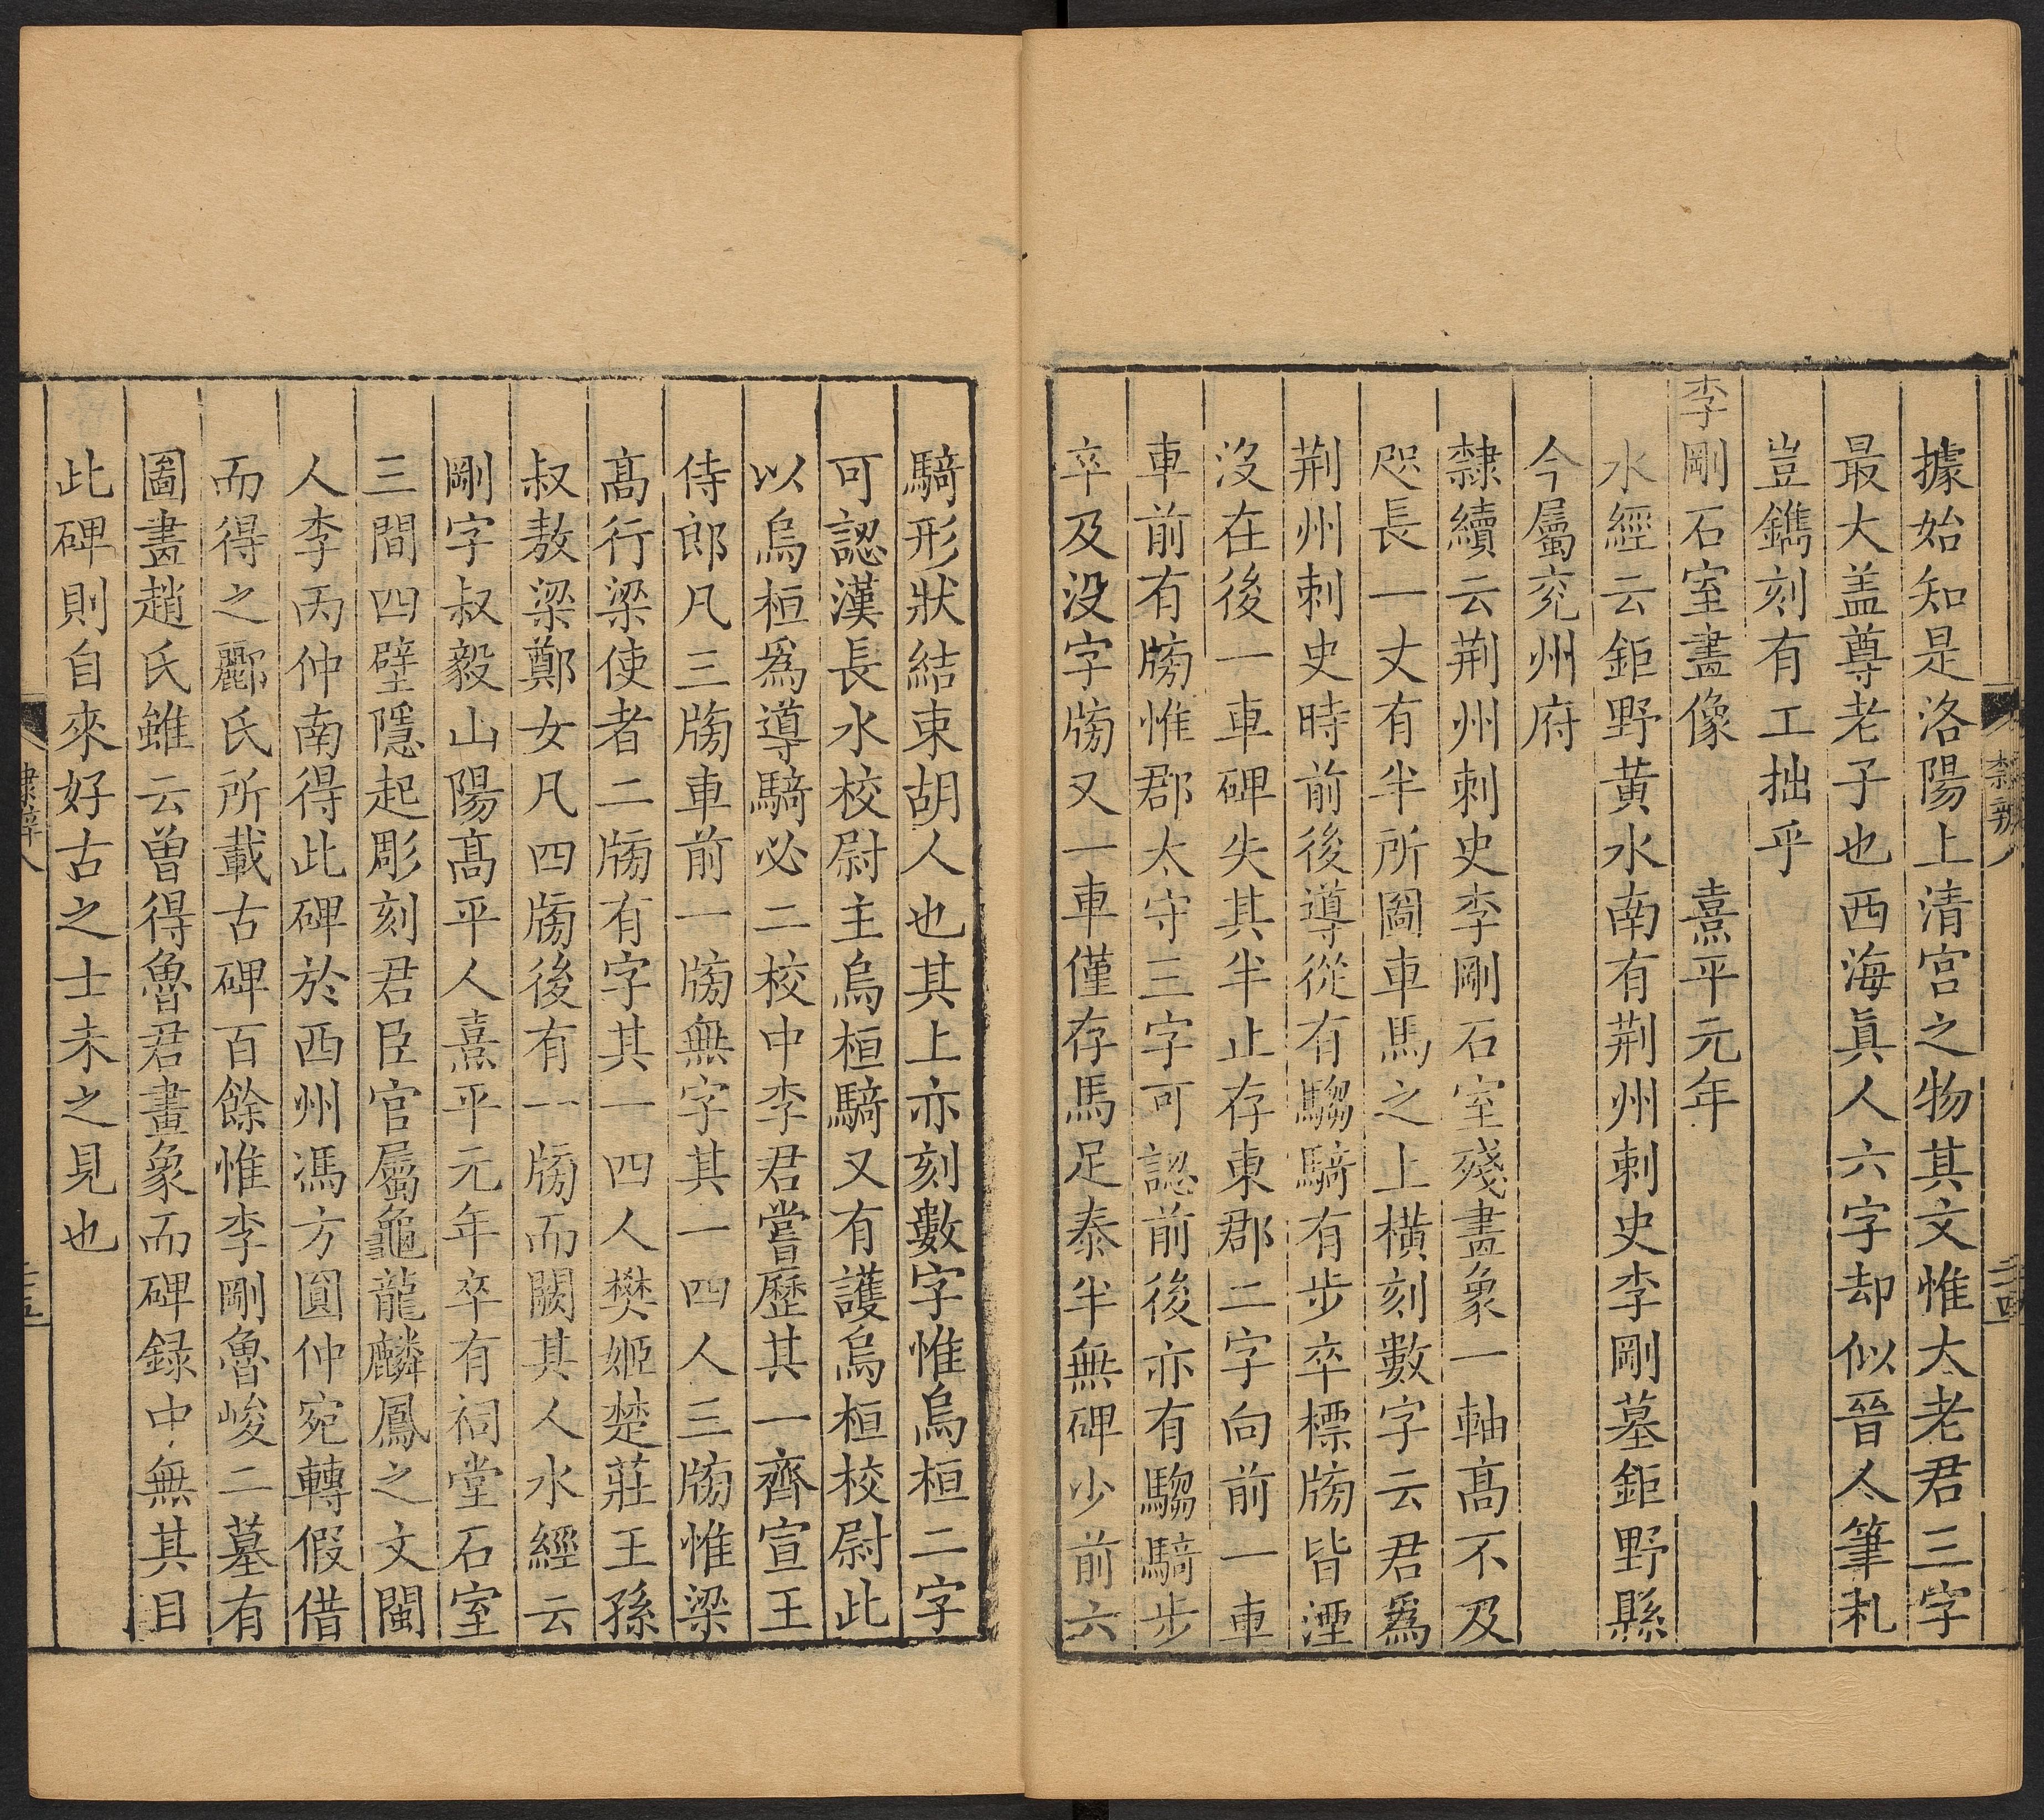 據始知是洛陽上清宮之物其文惟太老君三字
最大盖尊老子也西海眞人六字却似晉人筆札
豈鐫刻有工拙乎
李剛石室畵像 熹平元年
水經云鉅野黄水南有荆州刺史李剛墓鉅野縣
今屬兖州府
隸續云荆州刺史李剛石室殘畵象一軸髙不及
咫長一丈有半所圖車馬之上橫刻數字云君爲
荆州刺史時前後導從有騶騎有步卒標牓皆湮
沒在後一車碑失其半止存東郡二字向前一車
車前有牓惟郡太守三字可認前後亦有騶騎步
卒及没字牓又一車僅存馬足泰半無碑少前六
騎形狀結束胡人也其上亦刻數字惟烏桓二字
可認漢長水校尉主烏桓騎又有護烏桓校尉此
以烏桓爲導騎必二校中李君嘗歷其一齊宣王
侍郎凡三牓車前一牓無字其一四人三牓惟梁
髙行梁使者二牓有字其一四人樊姬楚莊王孫
叔敖梁鄭女凡四牓後有一牓而闕其人水經云
剛字叔毅山陽髙平人熹平元年卒有祠堂石室
三間四壁隱起彫刻君臣官屬龜龍麟鳳之文閩
人李丙仲南得此碑於西州馮方圓仲宛轉假借
而得之酈氏所載古碑百餘惟李剛魯峻二墓有
圖畵趙氏雖云曾得魯君畫象而碑録中無其目
此碑則自來好古之士未之見也
隸辨八
二十五